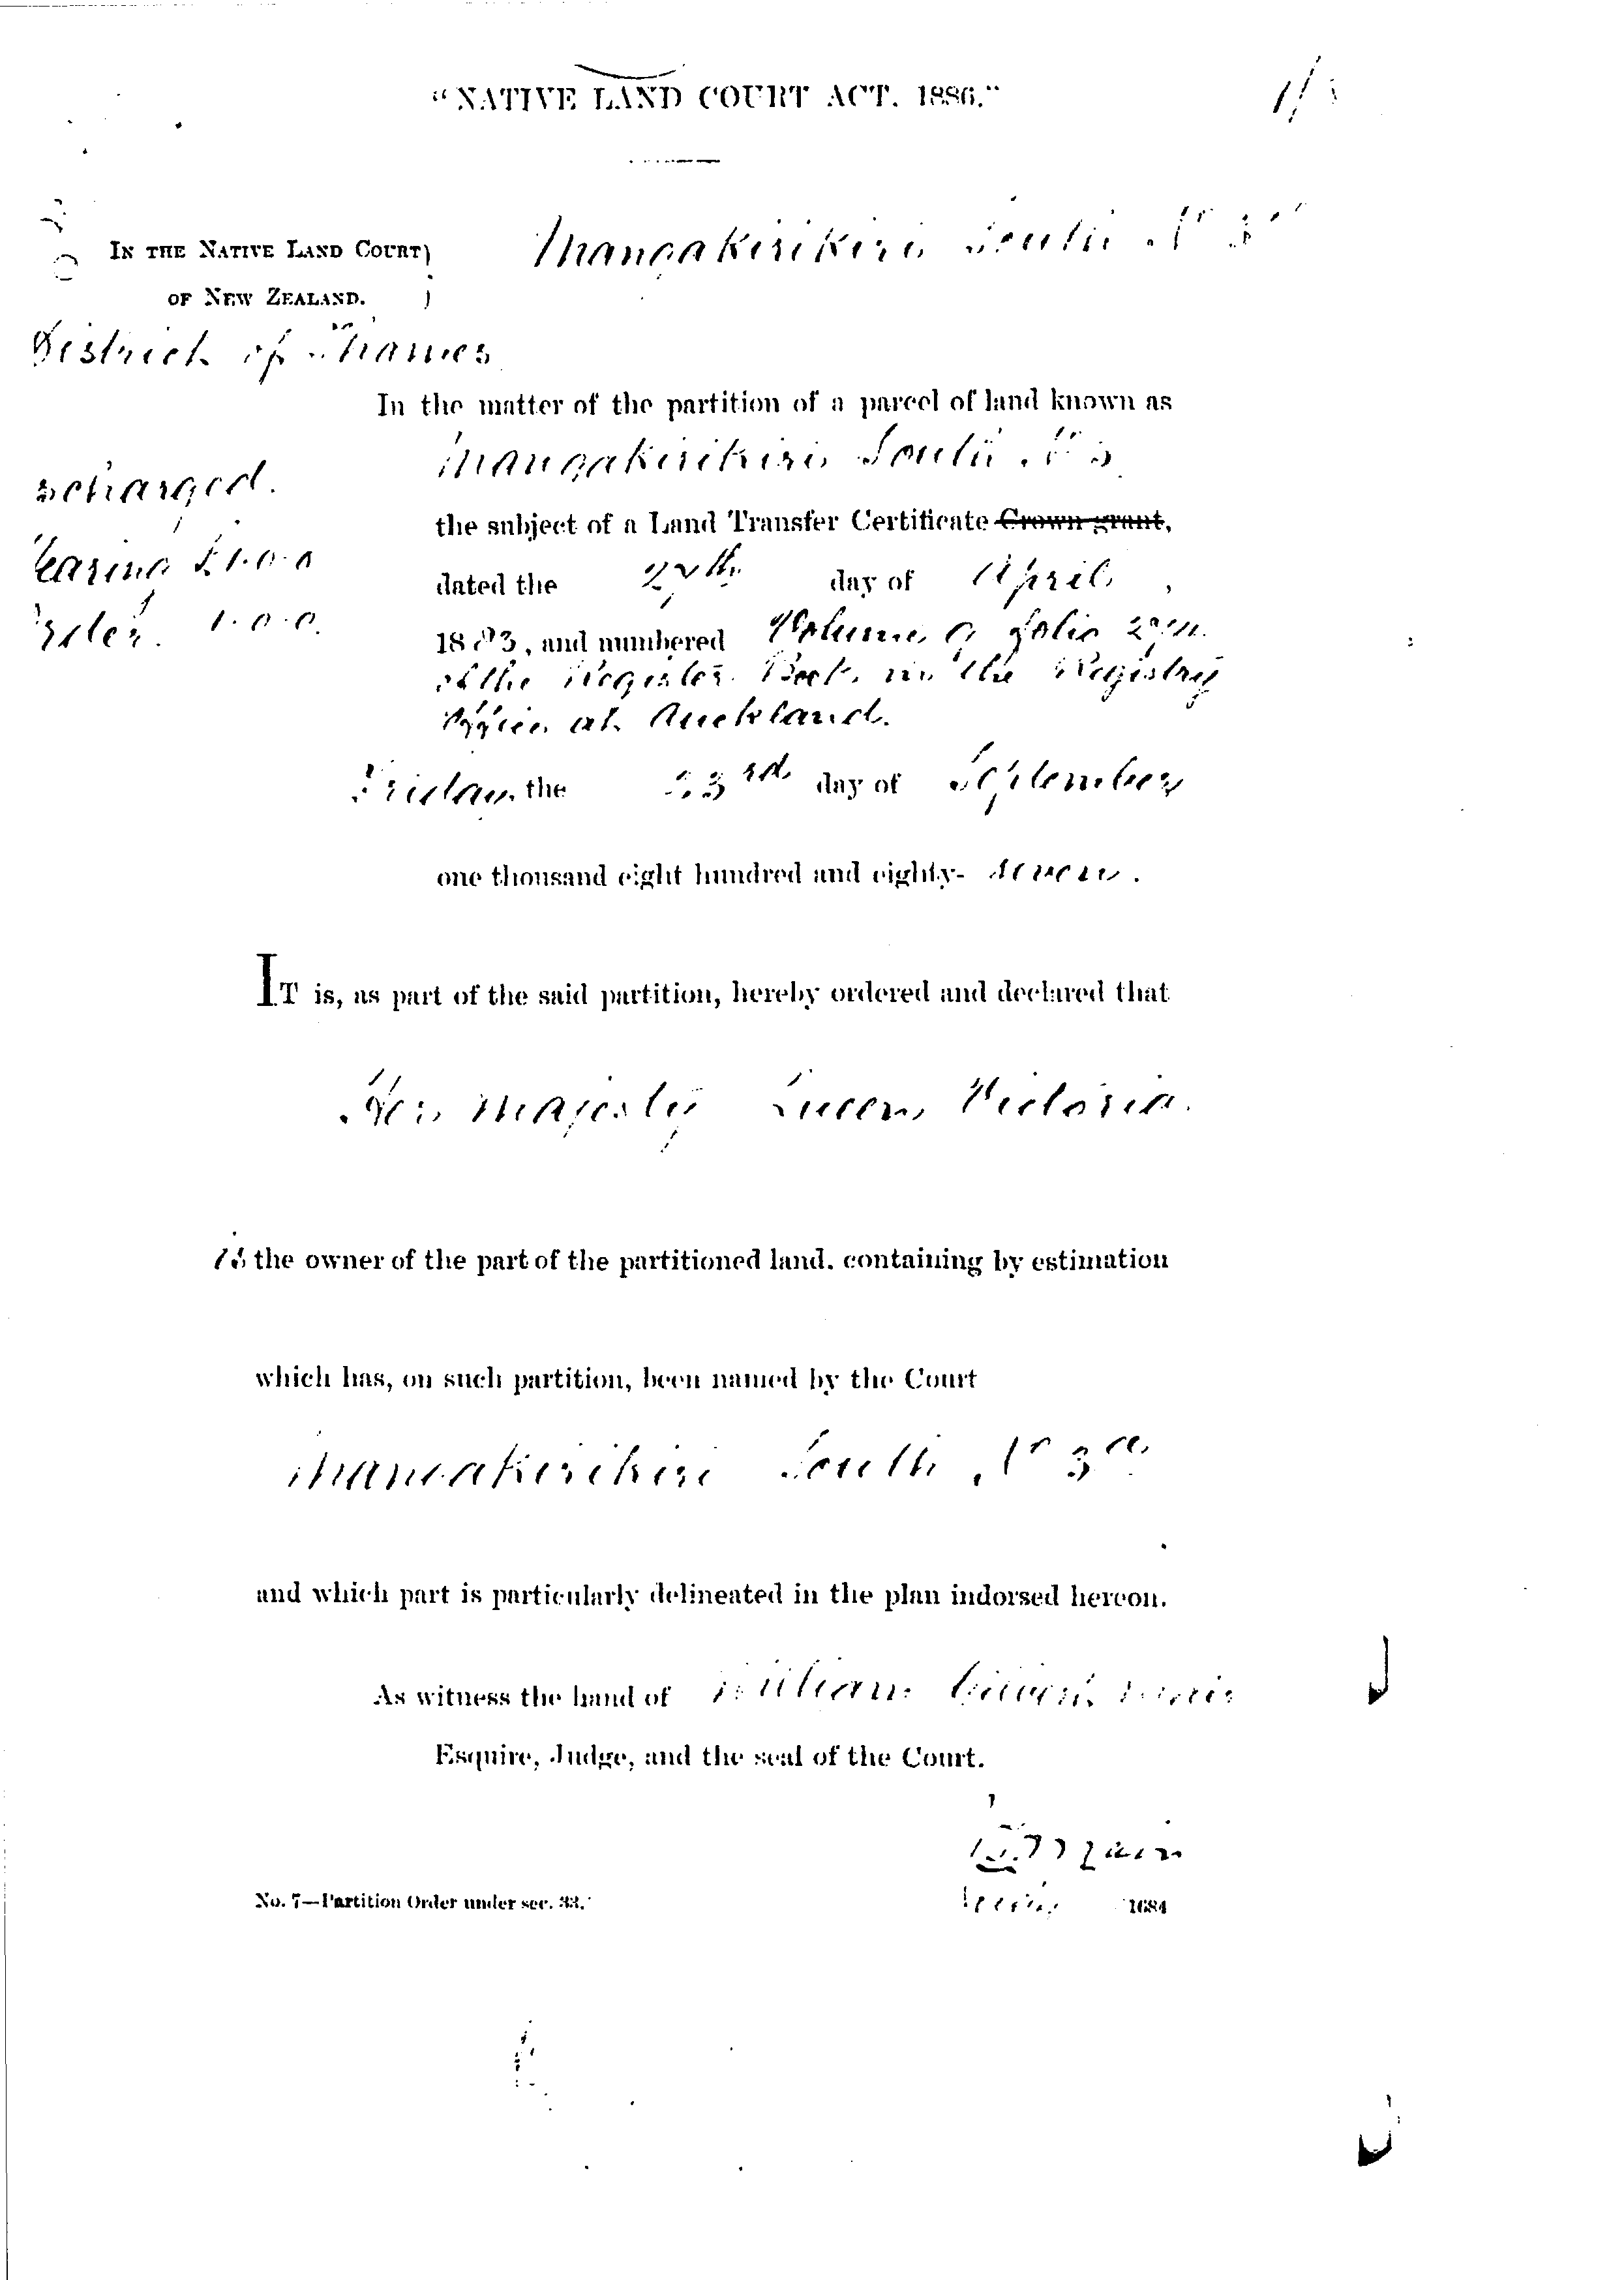 "NATIVE LAND COURT ACT. 1886."
Mangakirikiri South No 3a
IN THE NATIVE LAND COURT
OF NEW ZEALAND.
District of Thames
In the matter of the partition of a parcel of land known as
Mangakirikiri South No 3
the subject of a Land Transfer Certificate Crown grant,
dated the 27th day of April,
1883, and numbered Volume folio
of the Register Book in the Registry
Office at Auckland.
Friday, the 23rd day of September
one thousand eight hundred and eighty- seven.
charged.
earing £1.0.0
rder 1.0.0.
IT is, as part of the said partition, hereby ordered and declared that
Her Majesty Queen Victoria.
is the owner of the part of the partitioned land. containing by estimation
which has, on such partition, been named by the Court
Mangakirikiri South No 3a
and which part is particularly delineated in the plan indorsed hereon.
As witness the hand of William Mair
Esquire, Judge, and the seal of the Court.
Mair
No. 7—Partition Order under sec. 33. 1684